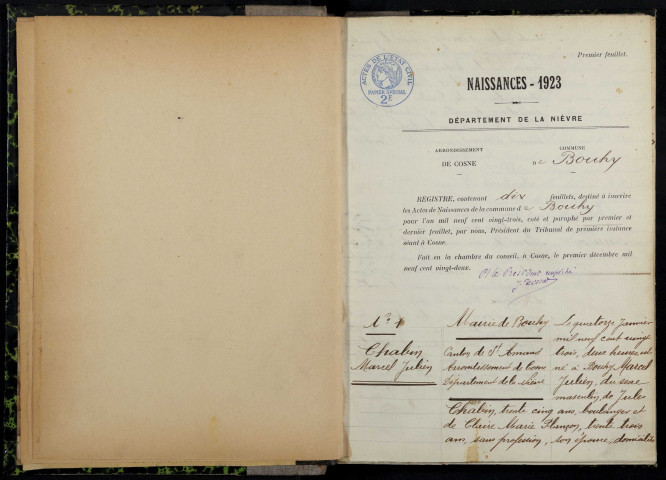 Premier feuillet.
ACTES DE L'ÉTAT CIVIL
PAPIER SPÉCIAL
2F
NAISSANCES - 1923
DÉPARTEMENT DE LA NIÈVRE
ARRONDISSEMENT
DE COSNE
COMMUNE
de Bouhy
REGISTRE, contenant dix feuillets, destiné à inscrire
les Actes de Naissances de la commune de Bouhy
pour l'an mil neuf cent vingt-trois, coté et paraphé par premier et
dernier feuillet, par nous, Président du Tribunal de première instance
séant à Cosne.
Fait en la chambre du conseil, à Cosne, le premier décembre mil
neuf cent vingt-deux.
Pr le Président empêché
No 1
Chabin
Marcel Julien
Mairie de Bouhy
Canton de St Amand
Arrondissement de Cosne
Département de la Nièvre
Le quatorze Janvier
mil neuf cent vingt
trois, deux heures, est
né à Bouhy Marcel
Julien, du sexe
masculin, de Jules
Chabin, trente cinq ans, boulanger et
de Claire Marie, trente trois
ans, sans profession, son épouse, domiciliés